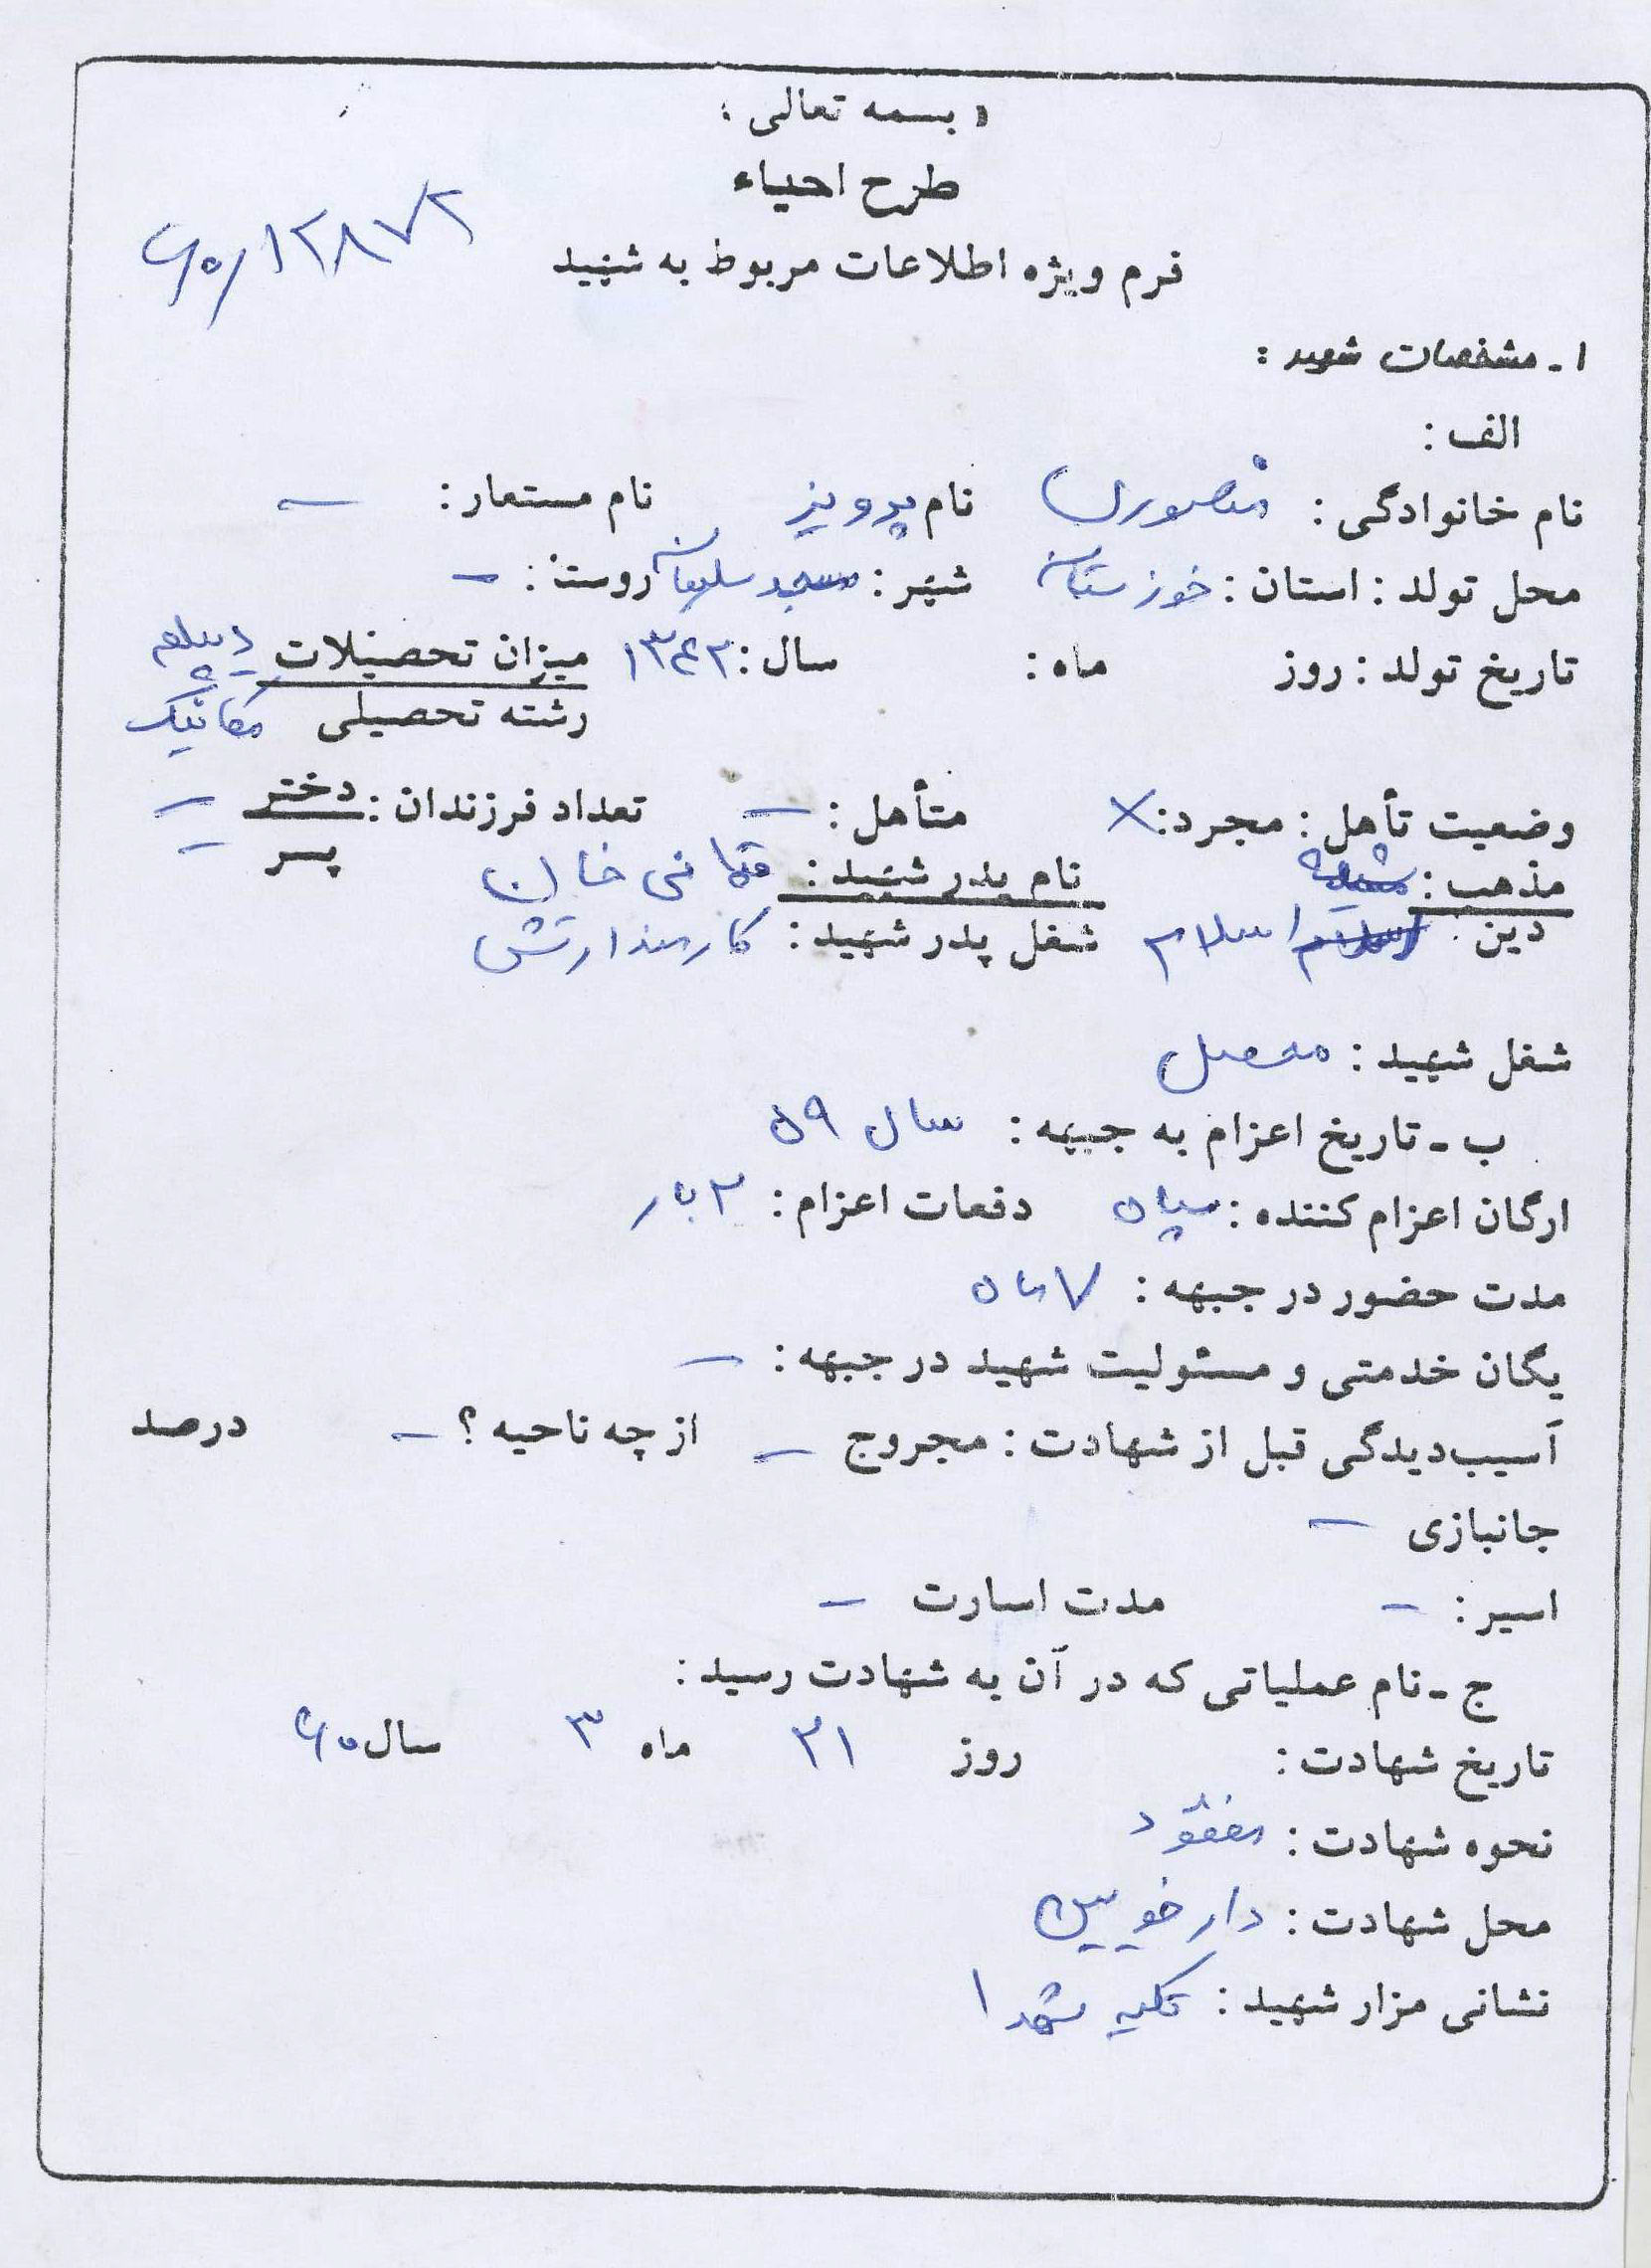 « بسمه تعالی »
طرح احیاء
۶۰/۱۲۸۷۲
فرم ویژه اطلاعات مربوط به شهید
۱ - مشخصات شهید :
الف :
نام خانوادگی : منصوری نام پرویز نام مستعار : –
محل تولد : استان : خوزستان شهر : مسجد سلیمان روستا : –
تاریخ تولد : روز ماه : سال : ۱۳۴۲ میزان تحصیلات دیپلم
رشته تحصیلی مکانیک
وضعیت تأهل : مجرد : × متأهل : – تعداد فرزندان : دختر –
پسر –
مذهب : شیعه نام پدر شهید : خان
دین : اسلام شغل پدر شهید : کارمند ارتش
شغل شهید : محصل
ب - تاریخ اعزام به جبهه : سال ۵۹
ارگان اعزام کننده : سپاه دفعات اعزام : ۲ بار
مدت حضور در جبهه : ۷ ماه
یگان خدمتی و مسئولیت شهید در جبهه : –
آسیب‌دیدگی قبل از شهادت : مجروح – از چه ناحیه ؟ – درصد
جانبازی –
اسیر : – مدت اسارت –
ج - نام عملیاتی که در آن به شهادت رسید :
تاریخ شهادت : روز ۲۱ ماه ۳ سال ۶۰
نحوه شهادت : مفقود
محل شهادت : دارخویین
نشانی مزار شهید : تکیه شهدا